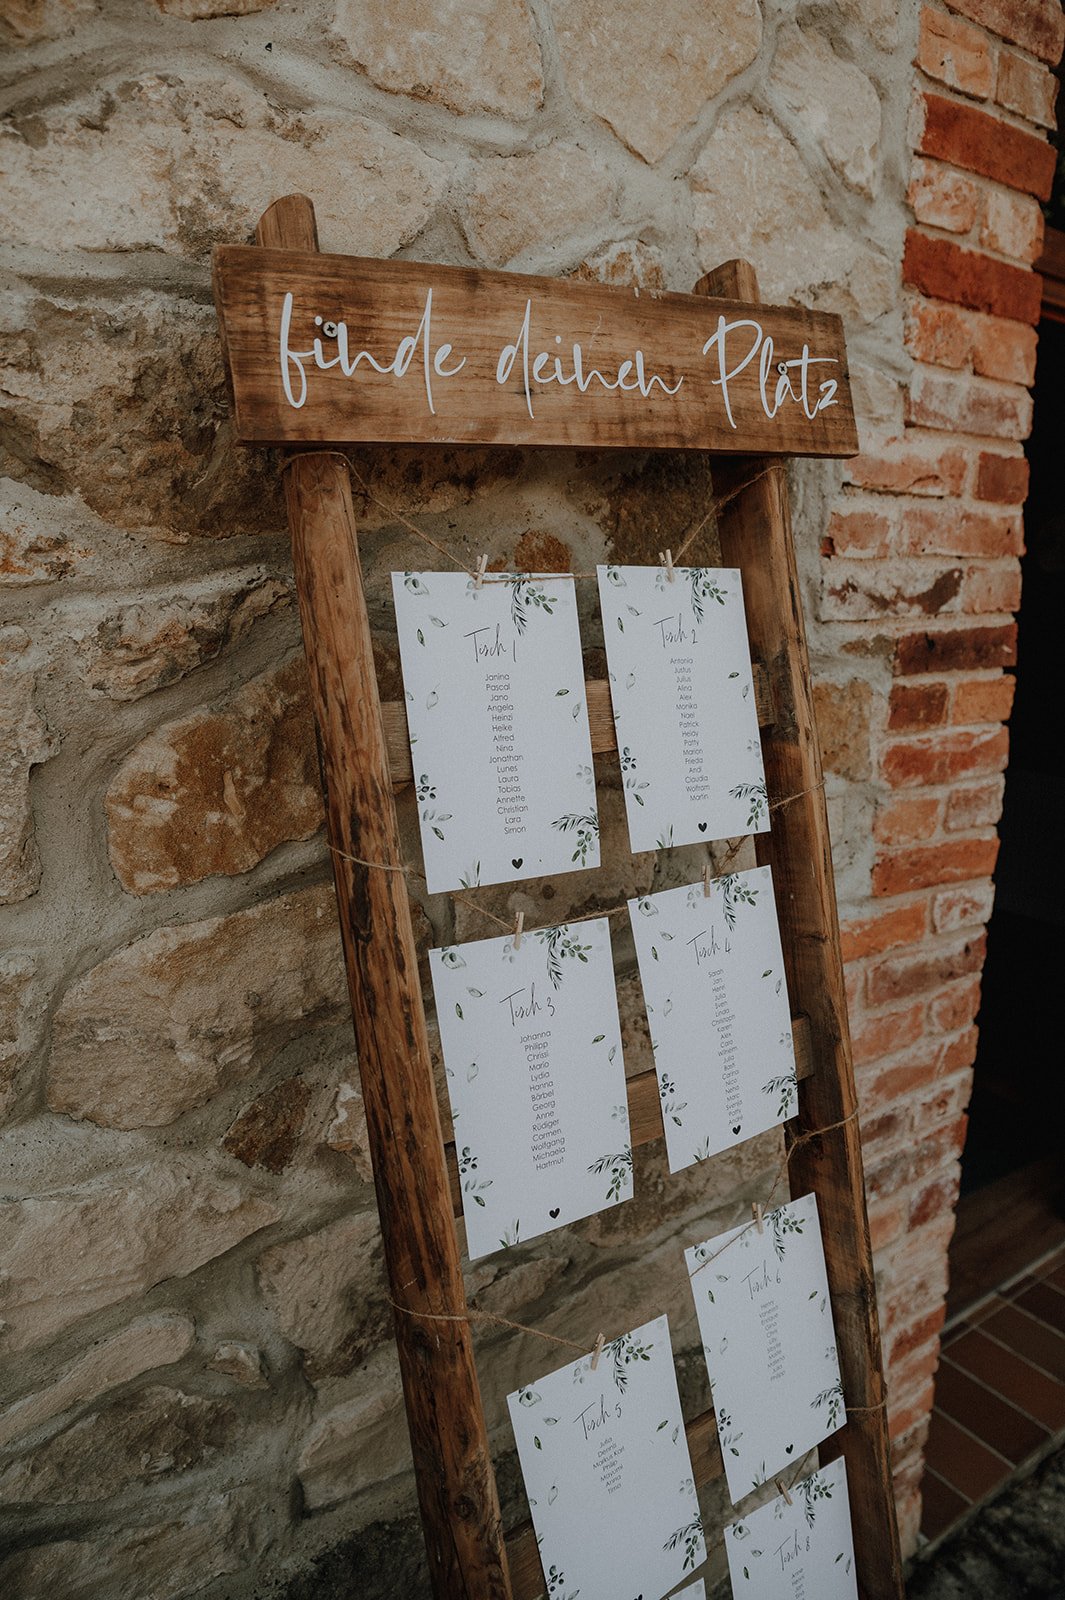 finde deinen Platz
Tisch 1
Janina
Pascal
Jano
Angela
Heinzi
Heike
Alfred
Nina
Jonathan
Lunes
Laura
Tobias
Annette
Christian
Lara
Simon
Tisch 2
Antonia
Justus
Julius
Alina
Alex
Monika
Nael
Patrick
Heidy
Patty
Marion
Frieda
Andi
Claudia
Wolfram
Martin
Tisch 3
Johanna
Philipp
Chrissi
Mario
Lydia
Hanna
Bärbel
Georg
Anne
Rüdiger
Carmen
Wolfgang
Michaela
Hartmut
Tisch 4
Sarah
Jan
Henri
Julia
Sven
Linda
Christoph
Karen
Alex
Caro
Wilhelm
Julia
Basti
Carina
Nico
Neha
Marc
Svenja
Patty
André
Tisch 5
Julia
Dennis
Markus Karl
Philip
Mayumi
Anna
Timo
Tisch 6
Henry
Vanessa
Enrique
Gina
Chris
Lilly
Sibylle
Marie
Malena
Julia
Philipp
Tisch 8
Anne
Jan